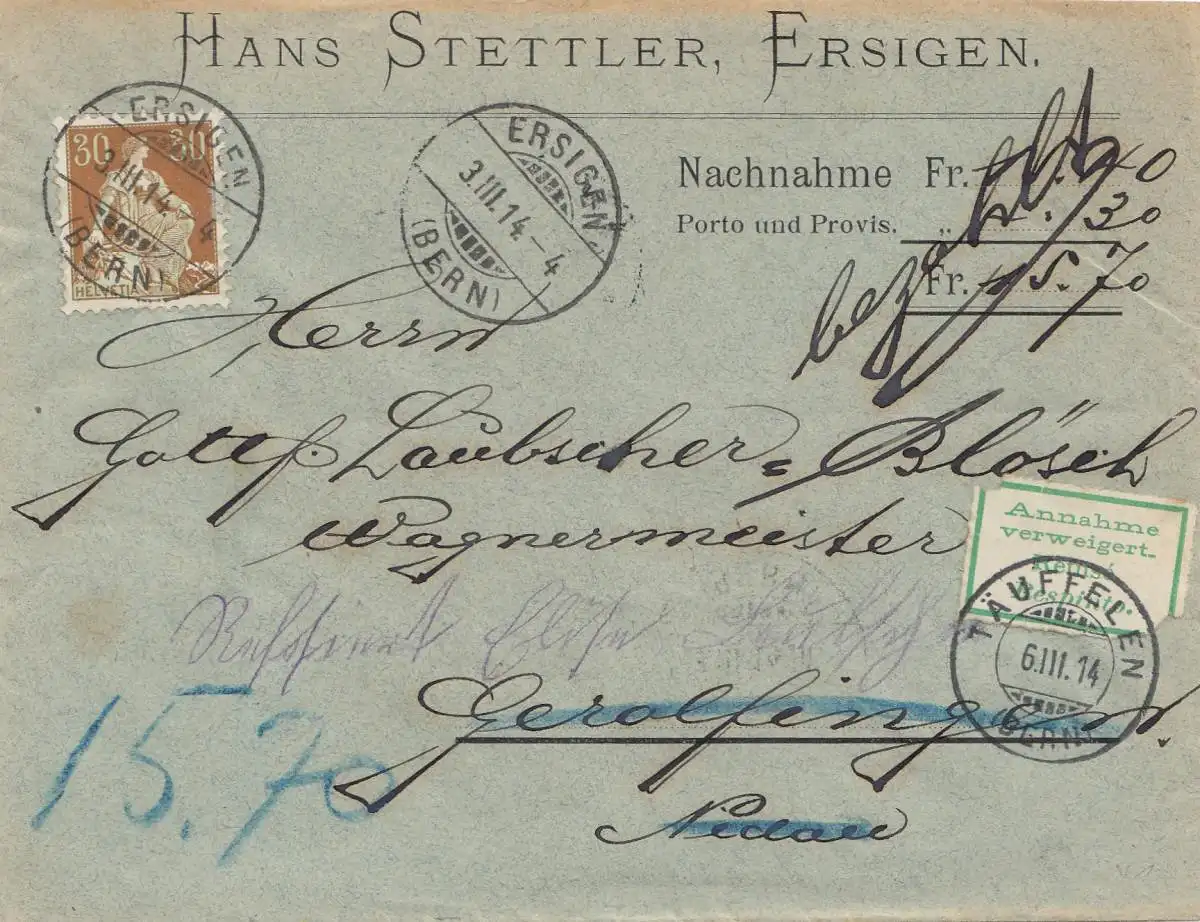 HANS STETTLER, ERSIGEN.
30 30
HELVETIA
ERSIGEN
3.III.14.-4
(BERN)
ERSIGEN
3.III.14.-4
(BERN)
Nachnahme Fr. 40
Porto und Provis. „ 30
Fr. 15.70
Herrn
Gottf. Laubscher=Blösch
Wagnermeister
Annahme
verweigert-
TÄUFFELEN
6.III.14
(BERN)
Gerolfingen.
15.70
Nidau